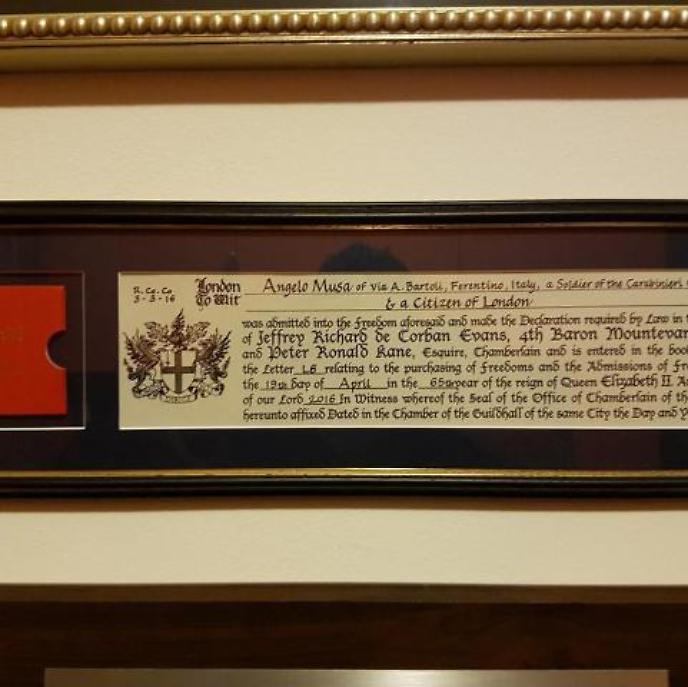 R. Co. Co
3-3-16
London
To Wit
Angelo Musa of via A. Bartoli, Ferentino, Italy, a Soldier of the Carabinieri
& a Citizen of London
was admitted into the Freedom aforesaid and made the Declaration required by Law in
of Jeffrey Richard de Corban Evans, 4th Baron Mountevan
and Peter Ronald Kane, Esquire, Chamberlain and is entered in the book
the Letter L6 relating to the purchasing of Freedoms and the Admissions of Fre
the 19th day of April in the 65th year of the reign of Queen Elizabeth II. A
of our Lord 2016 In Witness whereof the Seal of the Office of Chamberlain of th
hereunto affixed Dated in the Chamber of the Guildhall of the same City the Day and Y